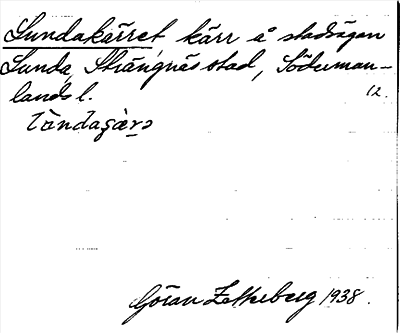 Sundakärret kärr å stadsägan
Sunda, Strängnäs stad, Söderman-
lands l. 12.
Göran Zetterberg 1938.